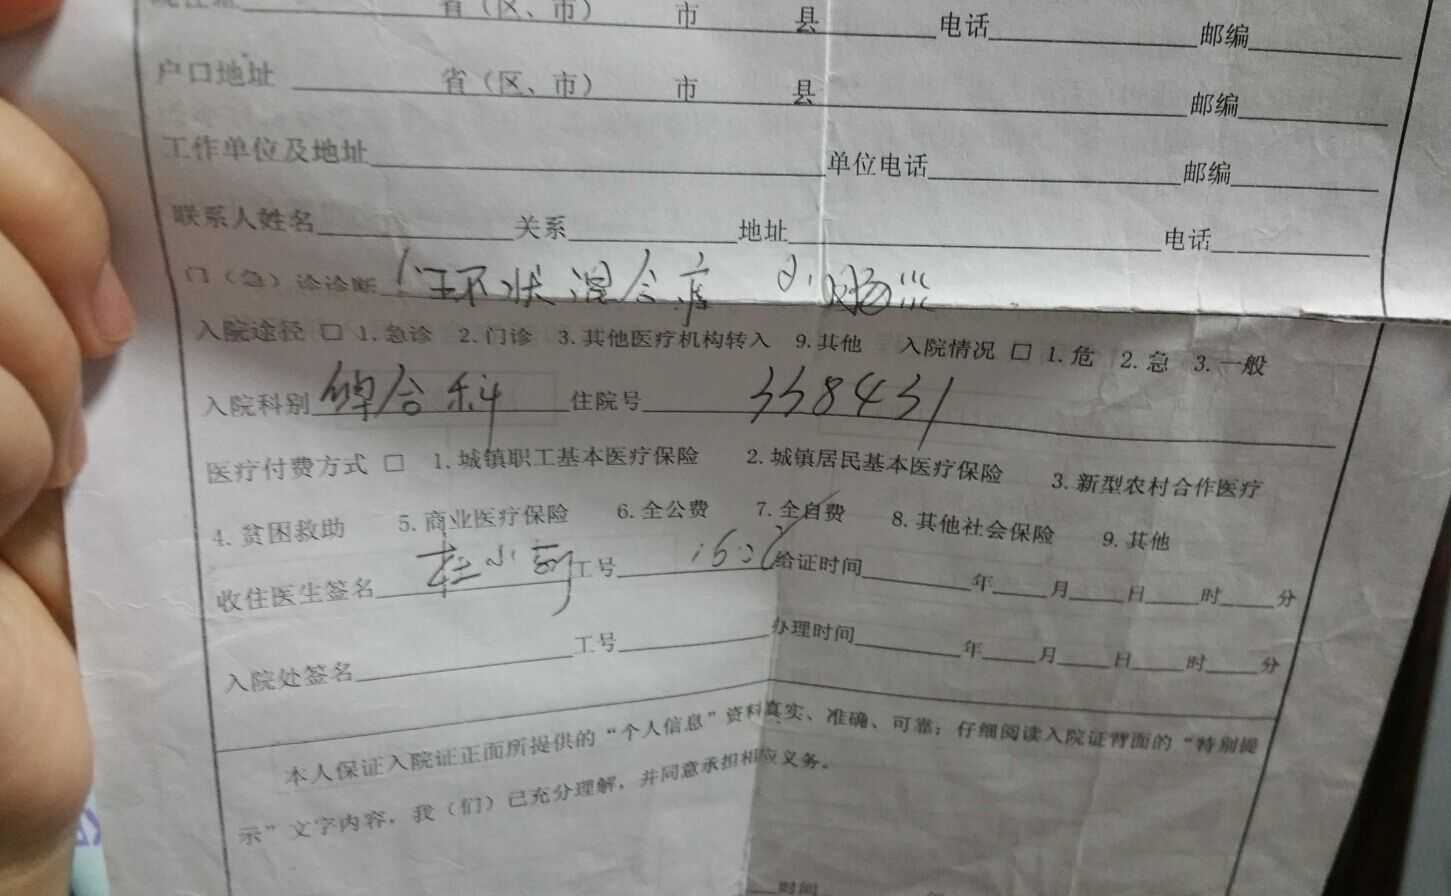 省（区、市） 市 县 电话 邮编
户口地址 省（区、市） 市 县 邮编
工作单位及地址 单位电话 邮编
联系人姓名 关系 地址 电话
门（急）诊诊断 环状混合痔
入院途径 □ 1.急诊 2.门诊 3.其他医疗机构转入 9.其他 入院情况 □ 1.危 2.急 3.一般
入院科别 综合科 住院号 338431
医疗付费方式 □ 1.城镇职工基本医疗保险 2.城镇居民基本医疗保险 3.新型农村合作医疗
4.贫困救助 5.商业医疗保险 6.全公费 7.全自费 8.其他社会保险 9.其他
收住医生签名 工号 给证时间 年 月 日 时 分
入院处签名 工号 办理时间 年 月 日 时 分
本人保证入院证正面所提供的“个人信息”资料真实、准确、可靠；仔细阅读入院证背面的“特别提
示”文字内容，我（们）已充分理解，并同意承担相应义务。
时间